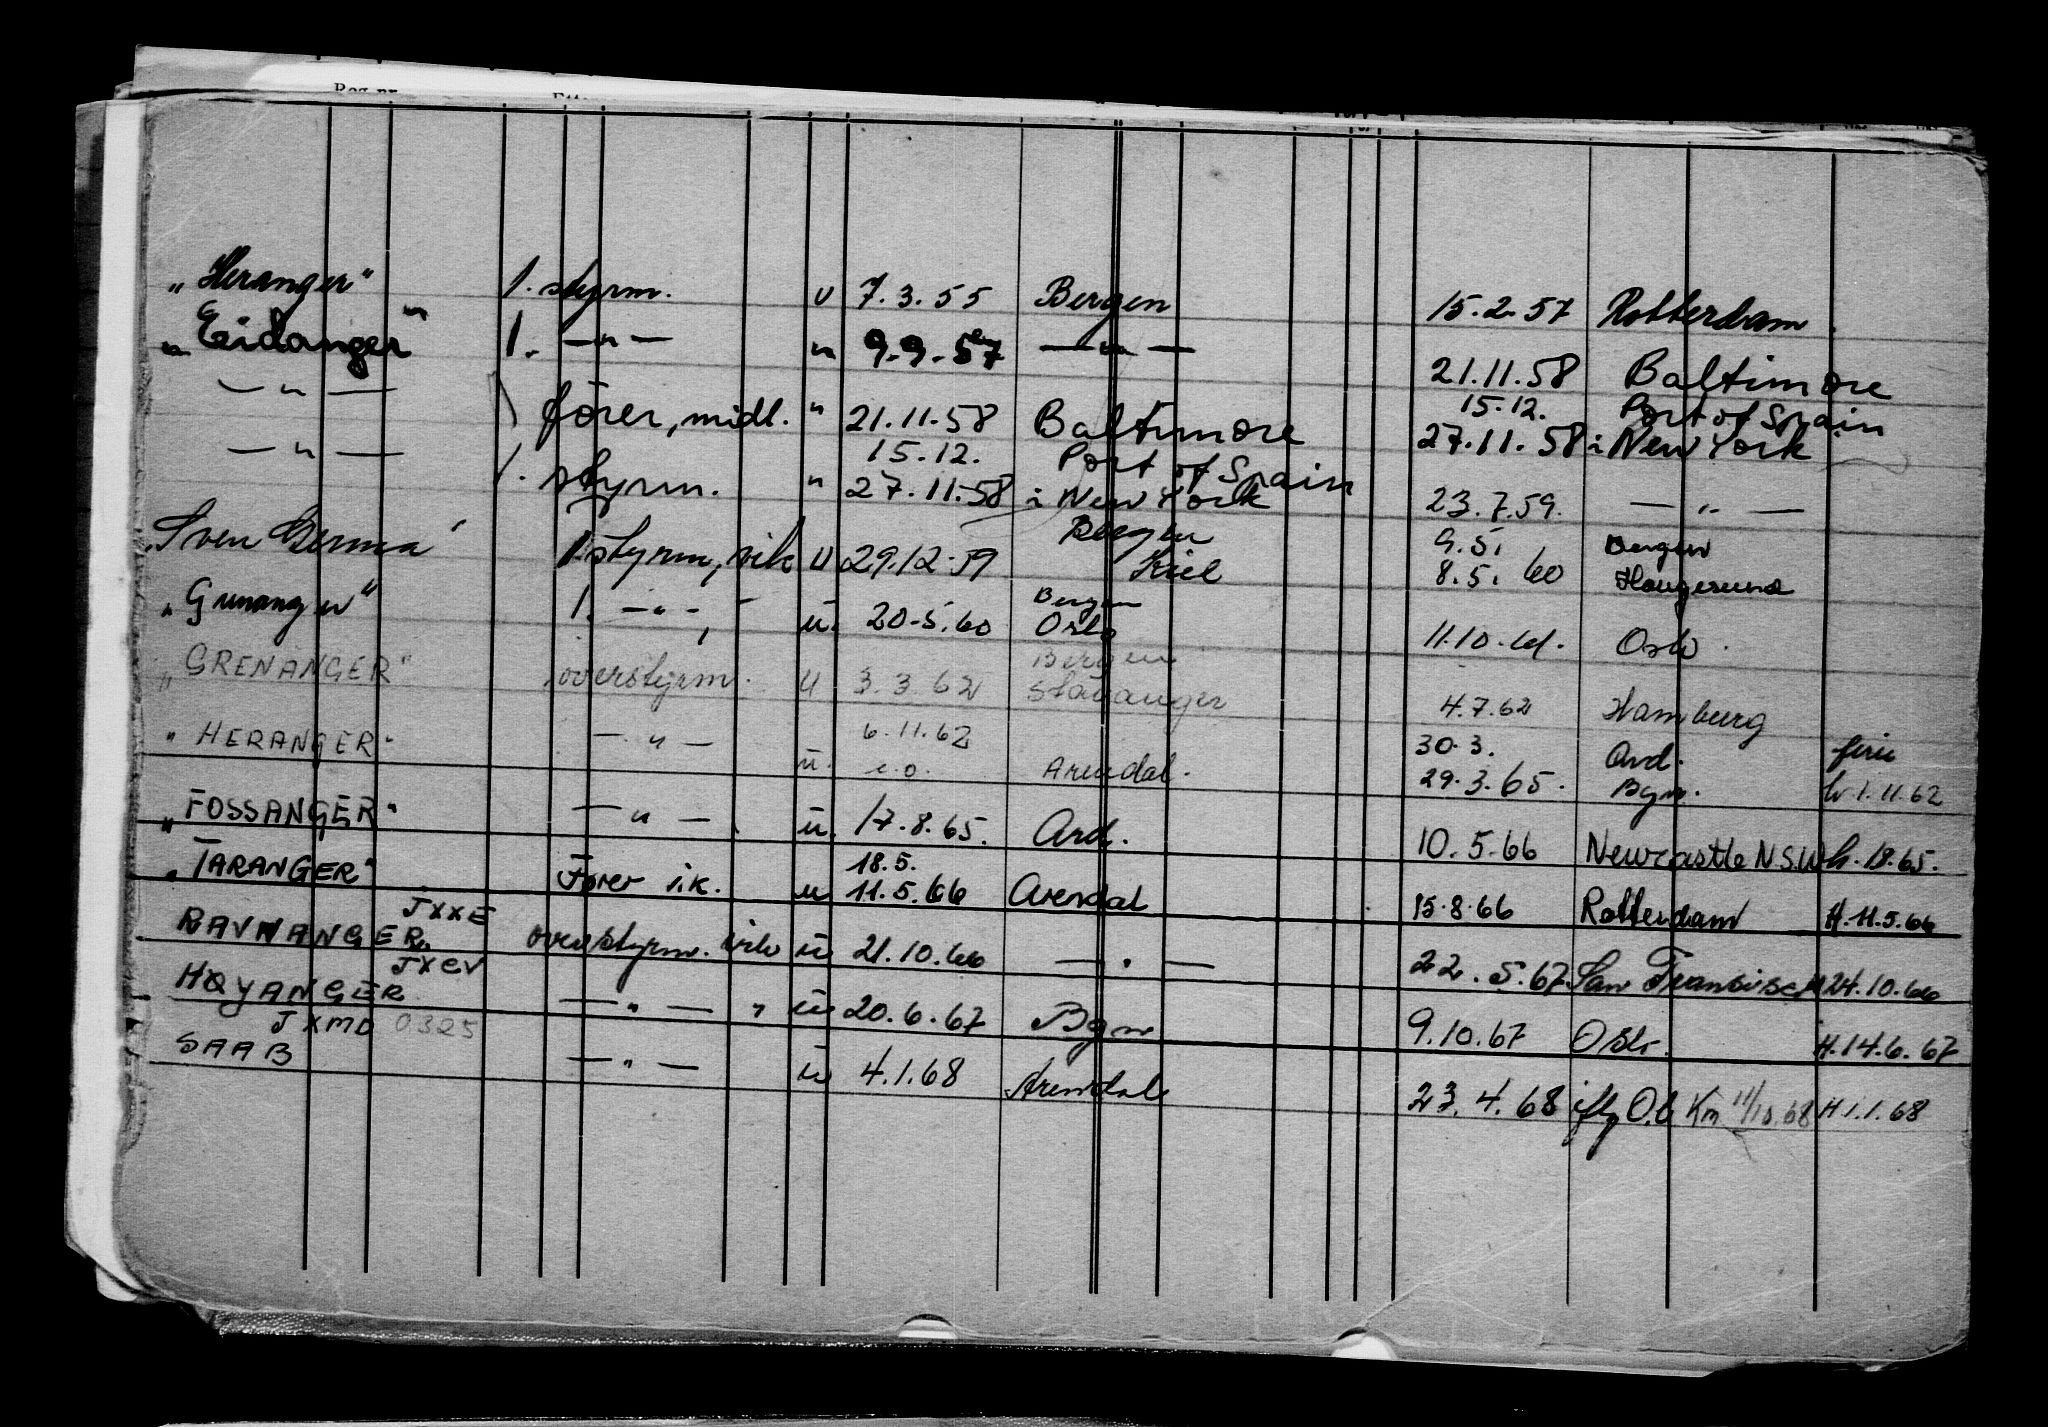 „Heranger" 1. styrm. u 7.3.55 Bergen 15.2.57 Rotterdam.
„Eidanger" 1. —"— " 9.9.57 —"— 21.11.58 Baltimore
—"— förer, midl. " 21.11.58 Baltimore 15.12. Port of Spain
27.11.58 i New York
—"— 1. styrm. " 15.12. Port of Spain
27.11.58 i New York 23.7.59. —"—
„Sven Germa" 1. styrm, vik u 29.12.59 Bergen Kiel 9.5. Bergen
8.5.60 Haugesund
„Grenanger" 1. —"—, u. 20.5.60 Bergen
Oslo 11.10.61. Oslo.
„GRENANGER" overstyrm. u 3.3.62 Bergen
Stavanger 4.7.62 Hamburg
„HERANGER" —"— 6.11.62 30.3. Ard. ferie
u. e.o. Arendal. 29.3.65. Bgn. h. 1.11.62
„FOSSANGER" —"— u. 17.8.65. Ard. 10.5.66 Newcastle N.S.W h. 1.8.65.
„TARANGER" Fører v.k. u 18.5.
11.5.66 Arendal 15.8.66 Rotterdam H.11.5.66
JXXE
RAVNANGER. overstyrm. vik u 21.10.66 —"— 22.5.67 San Francisco H 24.10.66
JXCV
HØYANGER —"— " u 20.6.67 Bgn 9.10.67 Oslo. H.14.6.67
JXMD 0325
SAAB —"— u 4.1.68 Arendal 23.4.68 iflg O.b Km 11/10.68 H 1.1.68